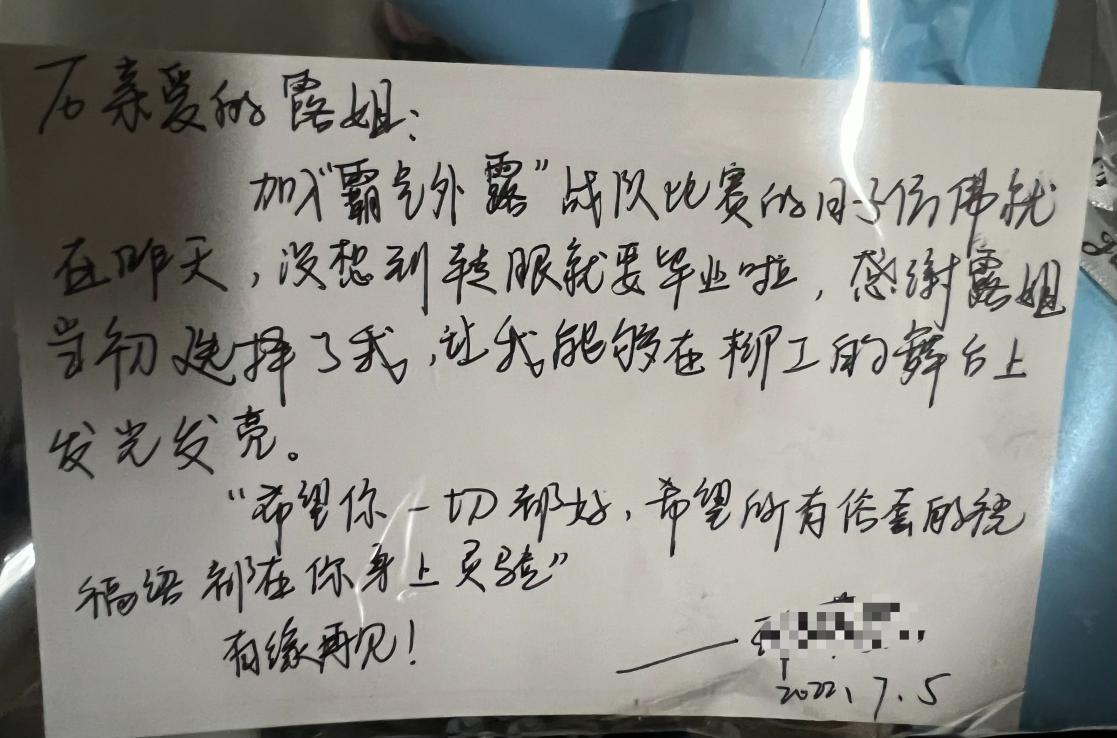 To 亲爱的露姐:
加入“霸气外露”战队比赛的日子仿佛就
在昨天，没想到转眼就要毕业啦，感谢露姐
当初选择了我，让我能够在柳工的舞台上
发光发亮。
“希望你一切都好，希望所有俗套的祝
福语都在你身上灵验”
有缘再见！
2022.7.5